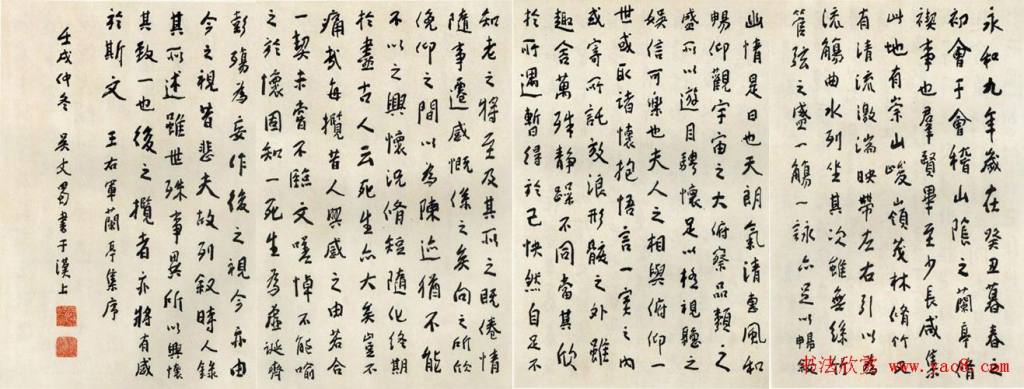 永和九年歲在癸丑暮春之
初會于會稽山陰之蘭亭脩
禊事也羣賢畢至少長咸集
此地有崇山峻領茂林脩竹又
有清流激湍映帶左右引以為
流觴曲水列坐其次雖無絲竹
管弦之盛一觴一詠亦足以暢敘
幽情是日也天朗氣清惠風和
暢仰觀宇宙之大俯察品類之
盛所以遊目騁懷足以極視聽之
娛信可樂也夫人之相與俯仰一
世或取諸懷抱悟言一室之內
或寄所託放浪形骸之外雖
趣舍萬殊靜躁不同當其欣
於所遇暫得於己快然自足不
知老之將至及其所之既倦情
隨事遷感慨係之矣向之所欣
俛仰之間以為陳迹猶不能
不以之興懷況脩短隨化終期
於盡古人云死生亦大矣豈不
痛哉每攬昔人興感之由若合
一契未嘗不臨文嗟悼不能喻
之於懷固知一死生為虛誕齊
彭殤為妄作後之視今亦由
今之視昔悲夫故列敘時人錄
其所述雖世殊事異所以興懷
其致一也後之攬者亦將有感
於斯文 王右軍蘭亭集序
壬戌仲冬 吳丈蜀書于漢上
书法欣赏
www.yac8.com